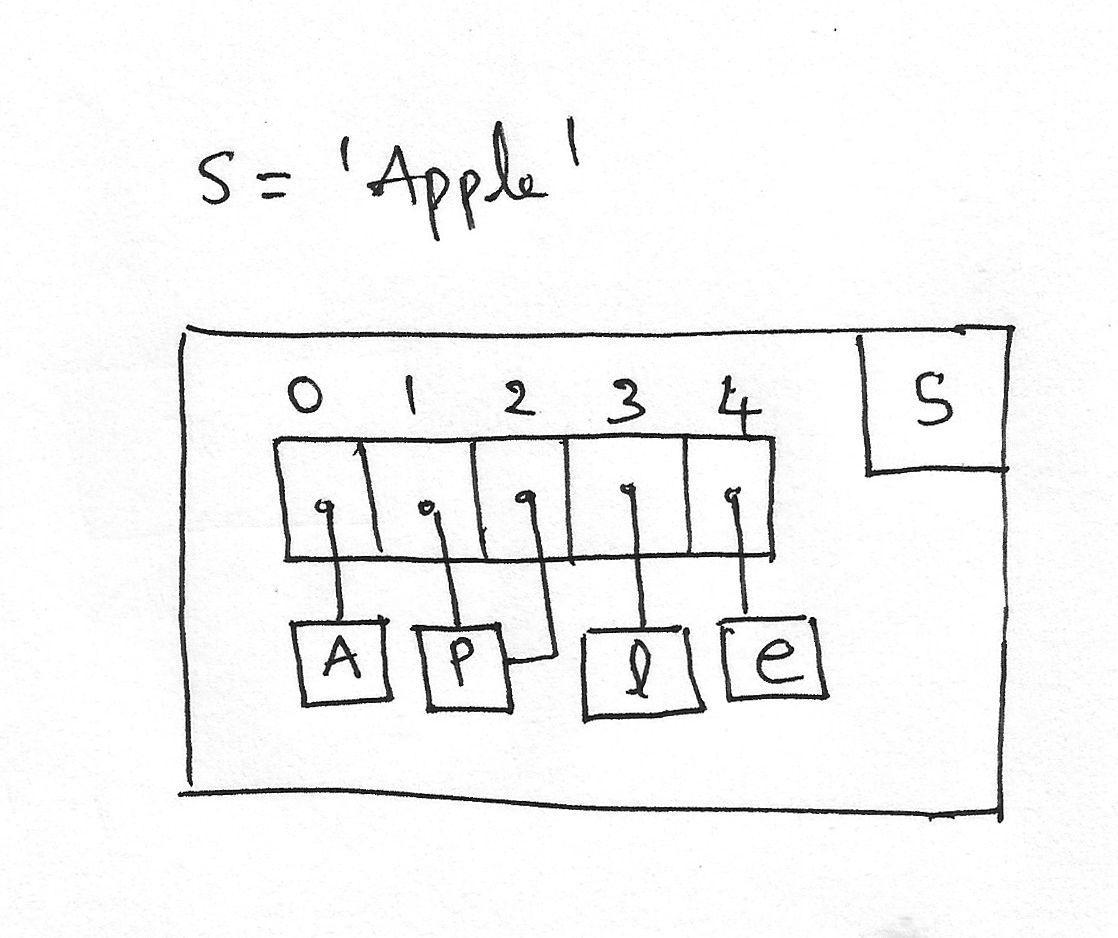 S = 'Apple'
S
0 1 2 3 4
A P l e